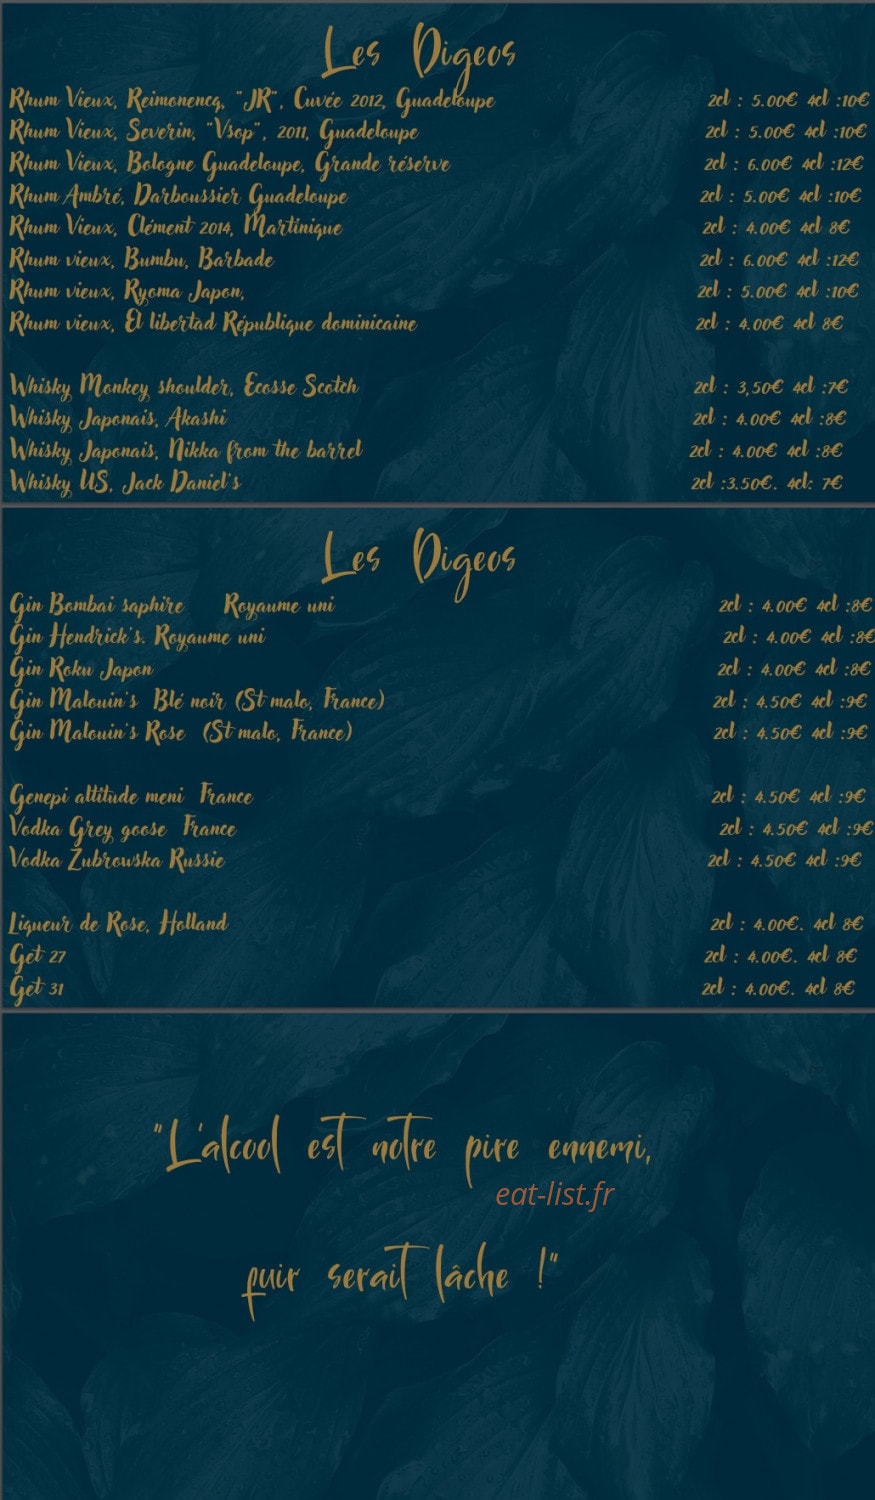 Les Digeos
Rhum Vieux, Reimonencq, "JR", Cuvée 2012, Guadeloupe 2cl : 5.00€ 4cl :10€
Rhum Vieux, Severin, "Vsop", 2011, Guadeloupe 2cl : 5.00€ 4cl :10€
Rhum Vieux, Bologne Guadeloupe, Grande réserve 2cl : 6.00€ 4cl :12€
Rhum Ambré, Darboussier Guadeloupe 2cl : 5.00€ 4cl :10€
Rhum Vieux, Clément 2014, Martinique 2cl : 4.00€ 4cl 8€
Rhum vieux, Bumbu, Barbade 2cl : 6.00€ 4cl :12€
Rhum vieux, Ryoma Japon, 2cl : 5.00€ 4cl :10€
Rhum vieux, El libertad République dominicaine 2cl : 4.00€ 4cl 8€
Whisky Monkey shoulder, Ecosse Scotch 2cl : 3,50€ 4cl :7€
Whisky Japonais, Akashi 2cl : 4.00€ 4cl :8€
Whisky Japonais, Nikka from the barrel 2cl : 4.00€ 4cl :8€
Whisky US, Jack Daniel's 2cl :3.50€. 4cl: 7€
Les Digeos
Gin Bombai saphire Royaume uni 2cl : 4.00€ 4cl :8€
Gin Hendrick's. Royaume uni 2cl : 4.00€ 4cl :8€
Gin Roku Japon 2cl : 4.00€ 4cl :8€
Gin Malouin's Blé noir (St malo, France) 2cl : 4.50€ 4cl :9€
Gin Malouin's Rose (St malo, France) 2cl : 4.50€ 4cl :9€
Genepi altitude meni France 2cl : 4.50€ 4cl :9€
Vodka Grey goose France 2cl : 4.50€ 4cl :9€
Vodka Zubrowska Russie 2cl : 4.50€ 4cl :9€
Liqueur de Rose, Holland 2cl : 4.00€. 4cl 8€
Get 27 2cl : 4.00€. 4cl 8€
Get 31 2cl : 4.00€. 4cl 8€
"L'alcool est notre pire ennemi,
eat-list.fr
fuir serait lâche !"